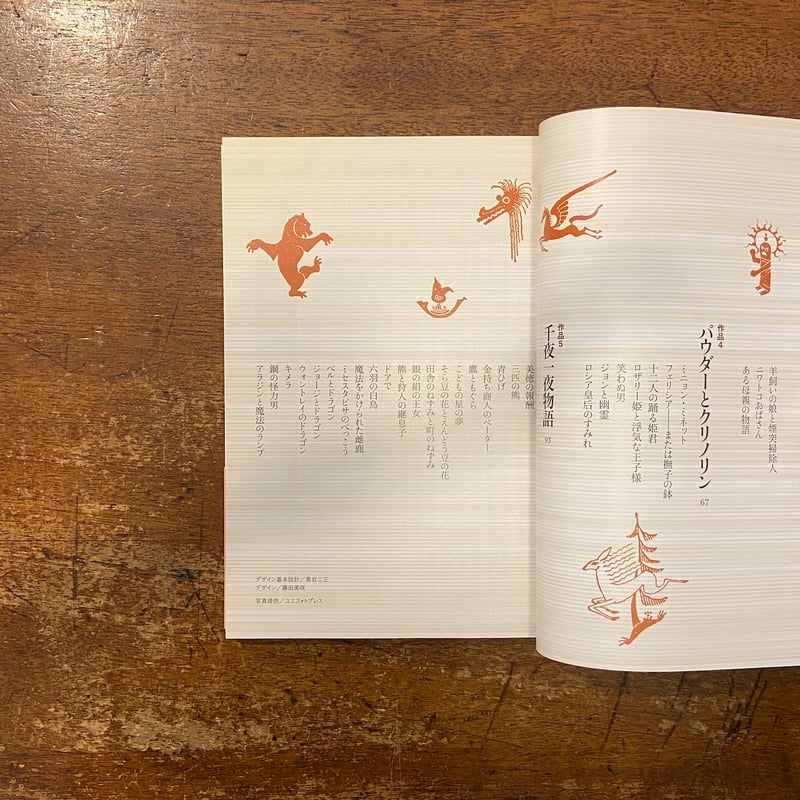 羊飼いの娘と煙突掃除人
ニワトコおばさん
ある母親の物語
作品4
パウダーとクリノリン 67
ミニョン・ミネット
フェリシア——または撫子の鉢
十二人の踊る姫君
ロザリー姫と浮気な王子様
笑わぬ男
ジョンと幽霊
ロシア皇后のすみれ
作品5
千夜一夜物語 93
美徳の報酬
三匹の熊
青ひげ
金持ち商人のペーター
鷹ともぐら
こどもの星の夢
そら豆の花とえんどう豆の花
田舎のねずみと町のねずみ
銀の樹の王女
熊と狩人の継息子
ドアで
六羽の白鳥
魔法をかけられた雌鹿
ミセスタビサのべっこう
ベルとドラゴン
ジョージとドラゴン
ウォントレイのドラゴン
キメラ
鋼の怪力男
アラジンと魔法のランプ
デザイン基本設計／黒岩二三
デザイン／藤田美咲
写真提供／ユニフォトプレス